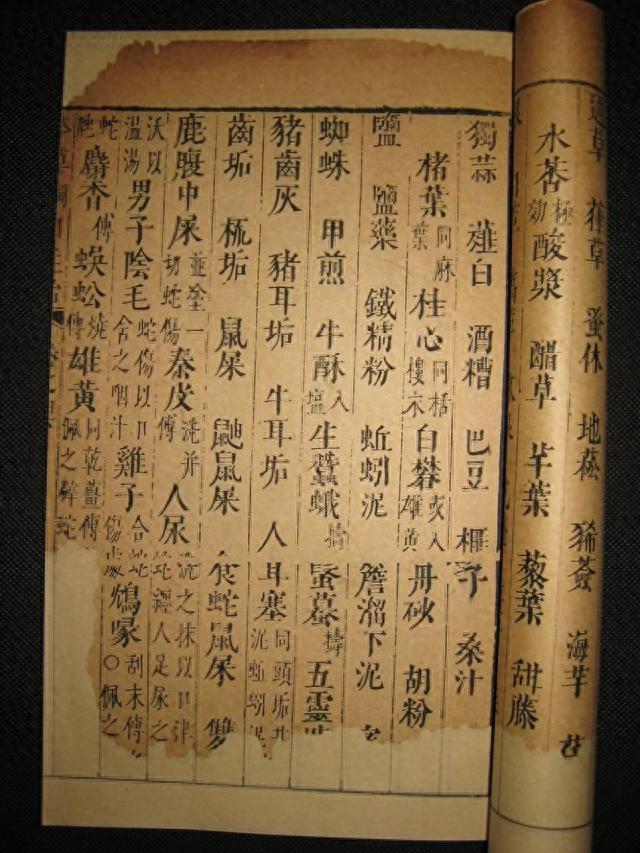 通草 葎草 蚤休 地菘 豨薟 海芋
水荅極効 酸漿 醋草 芋葉 藜葉 甜藤
獨蒜 薤白 酒糟 巴豆 榧子 桑汁
楮葉同麻葉 桂心同栝樓末 白礬或入雄黃 丹砂 胡粉
鹽 鹽藥 鐵精粉 蚯蚓泥 簷溜下泥
蜘蛛 甲煎 牛酥入鹽 生蠶蛾擣 蟇擣 五靈
豬齒灰 豬耳垢 牛耳垢 人耳塞同頭垢井泥蚯蚓泥
齒垢 梳垢 鼠屎 鼬鼠屎 食蛇鼠屎 雙
鹿腹中屎並塗一切蛇傷 秦皮洗并傅 人尿洗之抹以口津蛇纏人足尿之
沃以溫湯 男子陰毛蛇傷以口含之咽汁 雞子合蛇傷處 鴆喙刮末傅○佩之
蛇 麝香傅 蜈蚣燒傅 雄黃同乾薑傅佩之辟蛇